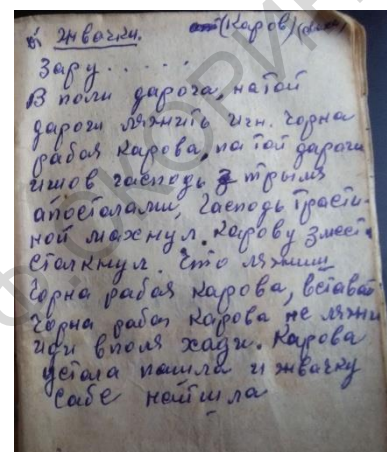 жвачки. (Каров)
Зару......
В поли дарога, на той
дароги ляжить игн. Чорна
рабоя карова, па той дароги
ишов гасподь з трыма
апосталами, Гасподь трасти-
ной махнул. Карову з мест
столкнул. Что ляжиш
Чорна рабоя карова, вставай
Чорна рабоя карова не ляжи
иди в поля хади. Карова
устала пашла и жвачку
сабе нашла